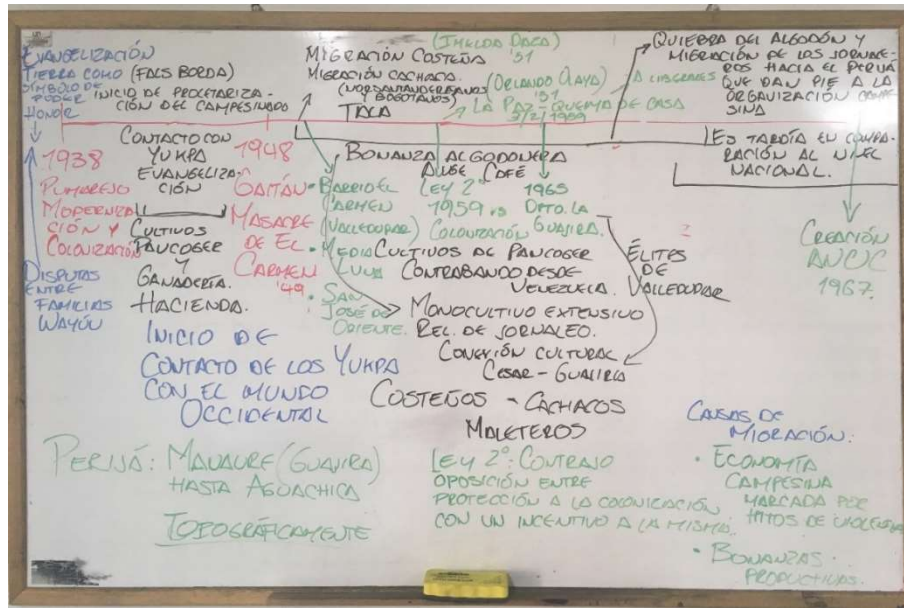 EVANGELIZACIÓN
TIERRA COMO (FALS BORDA)
SÍMBOLO DE
PODER
HONOR
INICIO DE PROLETARIZA-
CIÓN DEL CAMPESINADO
MIGRACIÓN COSTEÑA
MIGRACIÓN CACHACA
(NORSANTANDEREANOS
Y BOGOTANOS)
TALA
(IMELDA DAZA)
'51
(ORLANDO OLAYA)
'51
LA PAZ - QUEMA DE CASA
A LIBERALES
QUIEBRA DEL ALGODÓN Y
MIGRACIÓN DE LOS JORNALE-
ROS HACIA EL PERIJÁ
QUE DAN PIE A LA
ORGANIZACIÓN CAMPE-
SINA
ES TARDÍA EN COMPA-
RACIÓN AL NIVEL
NACIONAL.
1938
PUMAREJO
MODERNIZA-
CIÓN Y
COLONIZACIÓN
DISPUTAS
ENTRE
FAMILIAS
WAYÚU
CONTACTO CON
YUKPA
EVANGELIZA-
CIÓN
CULTIVOS
PANCOGER
Y
GANADERÍA.
HACIENDA.
1948
GAITÁN
MASACRE
DE EL
CARMEN
'49
• BARRIO EL
CARMEN
(VALLEDUPAR)
• MEDIA
LUNA
• SAN
JOSÉ DE
ORIENTE.
BONANZA ALGODONERA
AUGE CAFÉ
LEY 2ª
1959
COLONIZACIÓN
1965
DPTO. LA
GUAJIRA.
CULTIVOS DE PANCOGER
CONTRABANDO DESDE
VENEZUELA.
ÉLITES
DE
VALLEDUPAR
?
CREACIÓN
ANUC
1967.
MONOCULTIVO EXTENSIVO
REL. DE JORNALEO.
CONEXIÓN CULTURAL
CESAR - GUAJIRA
INICIO DE
CONTACTO DE LOS YUKPA
CON EL MUNDO
OCCIDENTAL
COSTEÑOS - CACHACOS
MALETEROS
PERIJÁ: MANAURE (GUAJIRA)
HASTA AGUACHICA
TOPOGRÁFICAMENTE
LEY 2ª: CONTRAJO
OPOSICIÓN ENTRE
PROTECCIÓN A LA COLONIZACIÓN
CON UN INCENTIVO A LA MISMA.
CAUSAS DE
MIGRACIÓN:
• ECONOMÍA
CAMPESINA
MARCADA POR
HITOS DE VIOLENCIA
• BONANZAS
PRODUCTIVAS.